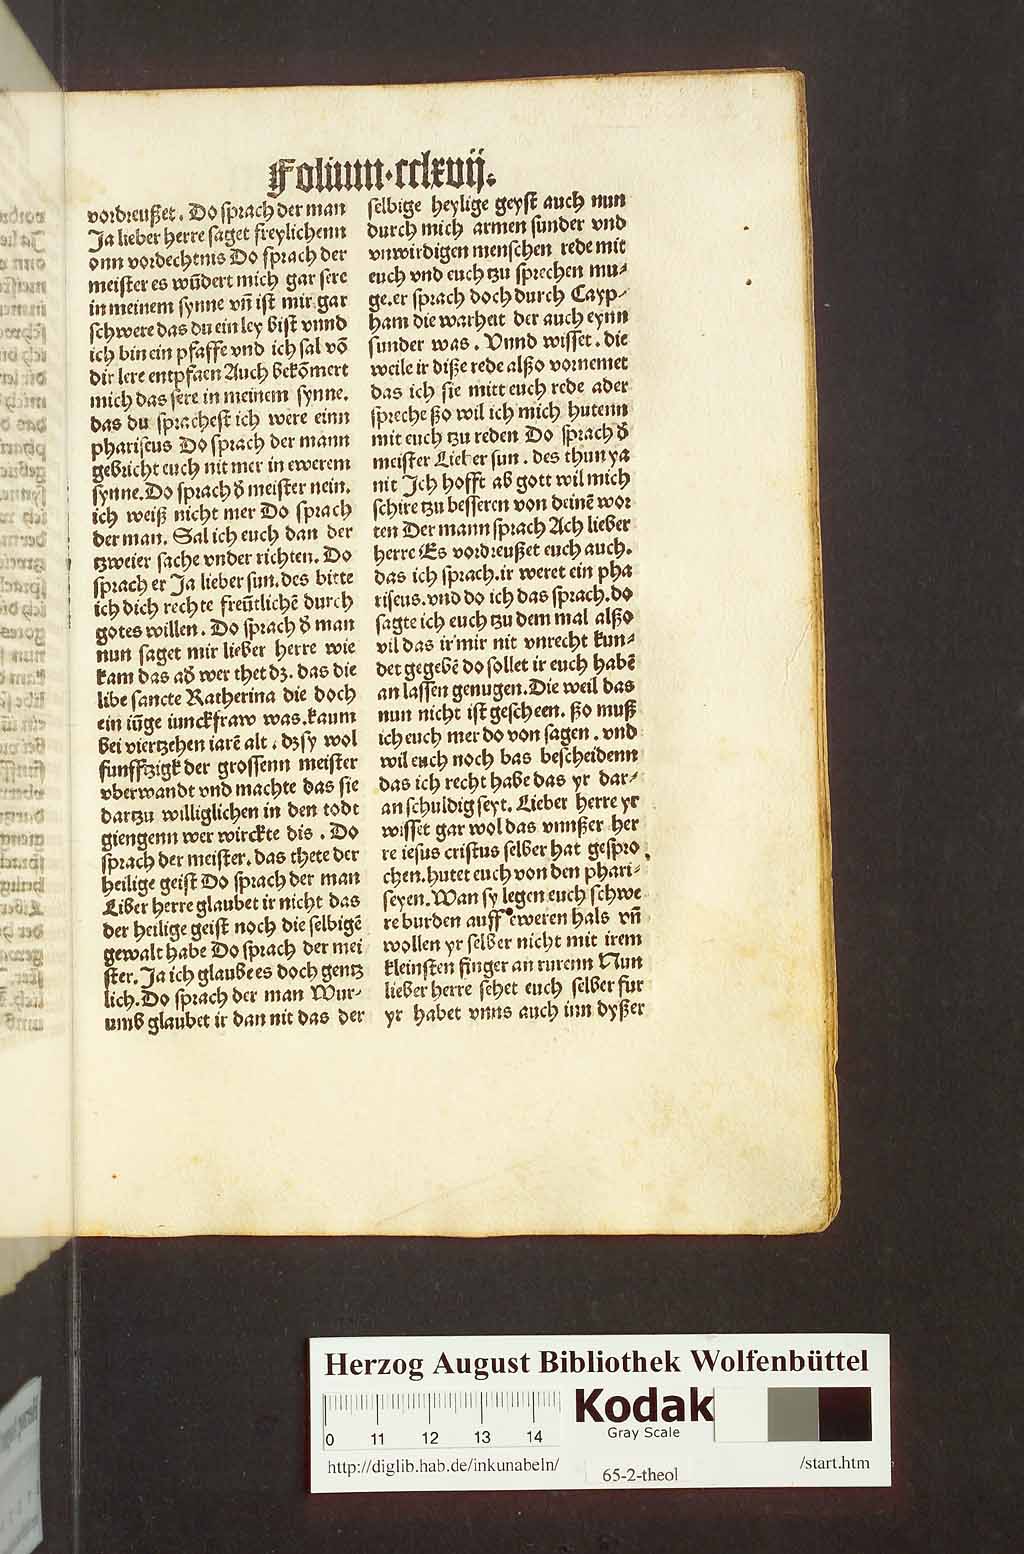 Folium·cclxvij.
vordreußet. Do sprach der man
Ja lieber herre saget freylichenn
onn vordechtnis Do sprach der
meister es wūdert mich gar sere
in meinem synne vn̄ ist mir gar
schwere das du ein ley bist vnnd
ich bin ein pfaffe vnd ich sal vō
dir lere entpfaen Auch bekōmert
mich das sere in meinem synne.
das du sprachest ich were einn
phariseus Do sprach der mann
gebricht euch nit mer in ewerem
synne. Do sprach d̄ meister nein.
ich weiß nicht mer Do sprach
der man. Sal ich euch dan der
tzweier sache vnder richten. Do
sprach er Ja lieber sun. des bitte
ich dich rechte freūtlichē durch
gotes willen. Do sprach d̄ man
nun saget mir lieber herre wie
kam das ad̄ wer thet dz. das die
libe sancte Katherina die doch
ein iūge iunckfraw was. kaum
bei viertzehen iarē alt. dz sy wol
funfftzigk der grossenn meister
vberwandt vnd machte das sie
dartzu williglichen in den todt
giengenn wer wirckte dis. Do
sprach der meister. das thete der
heilige geist Do sprach der man
Liber herre glaubet ir nicht das
der heilige geist noch die selbigē
gewalt habe Do sprach der mei
ster. Ja ich glaube es doch gentz
lich. Do sprach der man Wur-
umb glaubet ir dan nit das der
selbige heylige geyst auch nun
durch mich armen sunder vnd
vnwirdigen menschen rede mit
euch vnd euch tzu sprechen mu-
ge. er sprach doch durch Cayp-
ham die warheit der auch eynn
sunder was. Vnnd wisset. die
weile ir diße rede alßo vornemet
das ich sie mitt euch rede ader
spreche ßo wil ich mich hutenn
mit euch tzu reden Do sprach d̄
meister Lieber sun. des thun ya
nit Jch hofft ab gott wil mich
schire tzu besseren von deinē wor
ten Der mann sprach Ach lieber
herre Es vordreußet euch auch.
das ich sprach. ir weret ein pha
riseus. vnd do ich das sprach. do
sagte ich euch tzu dem mal alßo
vil das ir mir nit vnrecht kun-
det gegebē do sollet ir euch habē
an lassen genugen. Die weil das
nun nicht ist gescheen. ßo muß
ich euch mer do von sagen. vnd
wil euch noch bas bescheidenn
das ich recht habe das yr dar-
an schuldig seyt. Lieber herre yr
wisset gar wol das vnnßer her
re iesus cristus selber hat gespro
chen. hutet euch von den phari-
seyen. Wan sy legen euch schwe
re burden auff eweren hals vn̄
wollen yr selber nicht mit irem
kleinsten finger an rurenn Nun
lieber herre sehet euch selber fur
yr habet vnns auch inn dyßer
Herzog August Bibliothek Wolfenbüttel
0 11 12 13 14
Kodak
Gray Scale
http://diglib.hab.de/inkunabeln/
65-2-theol
/start.htm